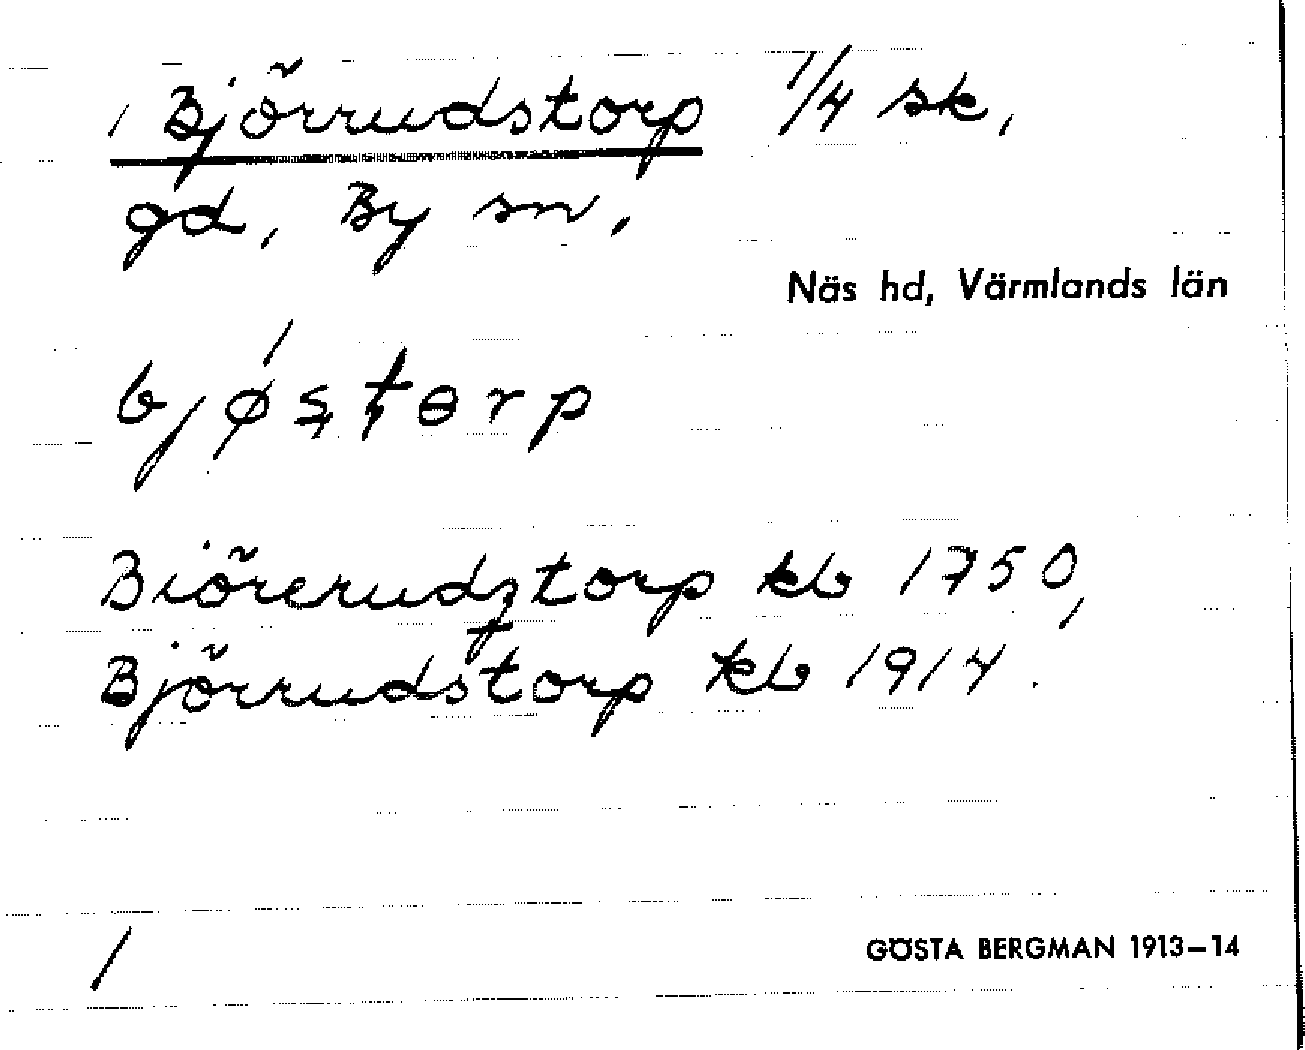 Björrudstorp 1/4 sk,
gd, By sn,
Näs hd, Värmlands län
bjøstɵrp
Biörerudztorp kb 1750,
Björrudstorp kb 1914.
1
GÖSTA BERGMAN 1913–14